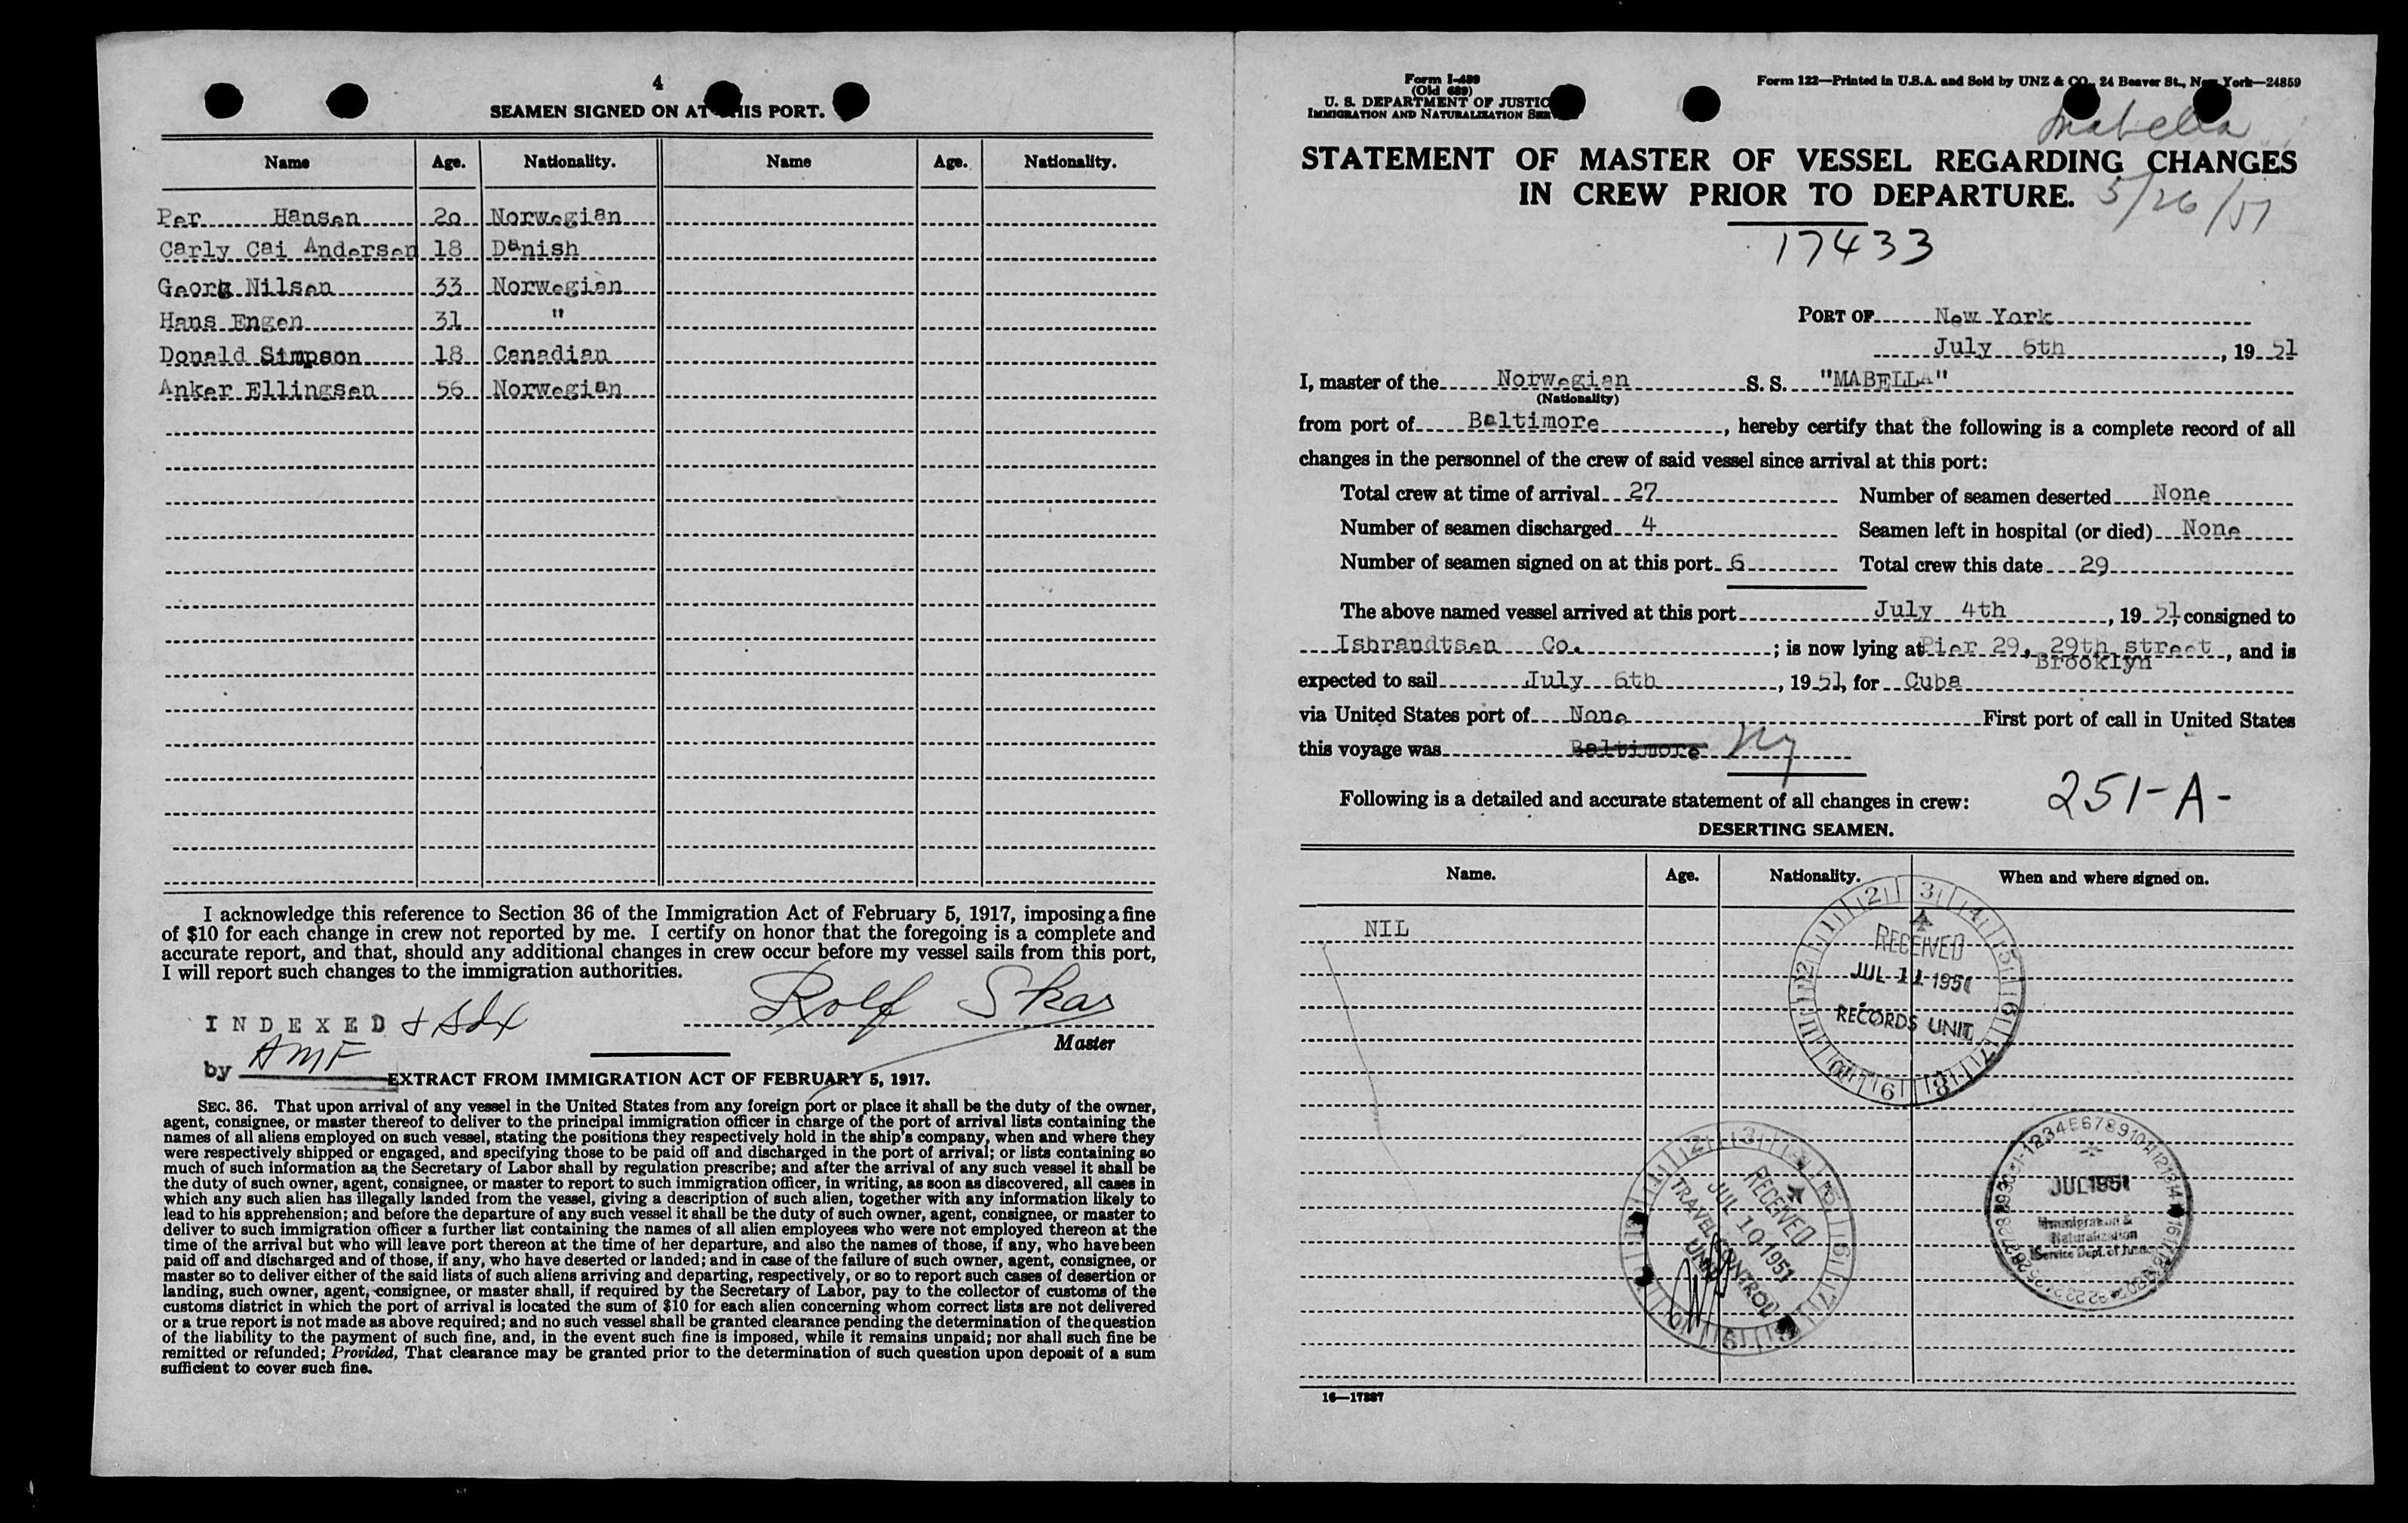 4
SEAMEN SIGNED ON AT THIS PORT.
Name Age. Nationality. Name Age. Nationality.
Per Hansen 20 Norwegian
Carly Cai Andersen 18 Danish
Georg Nilsen 33 Norwegian
Hans Engen 31 "
Donald Simpson 18 Canadian
Anker Ellingsen 56 Norwegian
I acknowledge this reference to Section 36 of the Immigration Act of February 5, 1917, imposing a fine
of $10 for each change in crew not reported by me. I certify on honor that the foregoing is a complete and
accurate report, and that, should any additional changes in crew occur before my vessel sails from this port,
I will report such changes to the immigration authorities.
Rolf Skar
INDEXED
Master
by AMF
EXTRACT FROM IMMIGRATION ACT OF FEBRUARY 5, 1917.
SEC. 36. That upon arrival of any vessel in the United States from any foreign port or place it shall be the duty of the owner,
agent, consignee, or master thereof to deliver to the principal immigration officer in charge of the port of arrival lists containing the
names of all aliens employed on such vessel, stating the positions they respectively hold in the ship's company, when and where they
were respectively shipped or engaged, and specifying those to be paid off and discharged in the port of arrival; or lists containing so
much of such information as the Secretary of Labor shall by regulation prescribe; and after the arrival of any such vessel it shall be
the duty of such owner, agent, consignee, or master to report to such immigration officer, in writing, as soon as discovered, all cases in
which any such alien has illegally landed from the vessel, giving a description of such alien, together with any information likely to
lead to his apprehension; and before the departure of any such vessel it shall be the duty of such owner, agent, consignee, or master to
deliver to such immigration officer a further list containing the names of all alien employees who were not employed thereon at the
time of the arrival but who will leave port thereon at the time of her departure, and also the names of those, if any, who have been
paid off and discharged and of those, if any, who have deserted or landed; and in case of the failure of such owner, agent, consignee, or
master so to deliver either of the said lists of such aliens arriving and departing, respectively, or so to report such cases of desertion or
landing, such owner, agent, consignee, or master shall, if required by the Secretary of Labor, pay to the collector of customs of the
customs district in which the port of arrival is located the sum of $10 for each alien concerning whom correct lists are not delivered
or a true report is not made as above required; and no such vessel shall be granted clearance pending the determination of the question
of the liability to the payment of such fine, and, in the event such fine is imposed, while it remains unpaid; nor shall such fine be
remitted or refunded; Provided, That clearance may be granted prior to the determination of such question upon deposit of a sum
sufficient to cover such fine.
Form I-489
(Old 689)
U. S. DEPARTMENT OF JUSTICE
IMMIGRATION AND NATURALIZATION SER
Form 122—Printed in U.S.A. and Sold by UNZ & CO., 24 Beaver St., New York—24859
Mabella
STATEMENT OF MASTER OF VESSEL REGARDING CHANGES
IN CREW PRIOR TO DEPARTURE.
5/26/51
17433
PORT OF New York
July 6th, 19 51
I, master of the Norwegian S. S. "MABELLA"
(Nationality)
from port of Baltimore, hereby certify that the following is a complete record of all
changes in the personnel of the crew of said vessel since arrival at this port:
Total crew at time of arrival 27 Number of seamen deserted None
Number of seamen discharged 4 Seamen left in hospital (or died) None
Number of seamen signed on at this port 6 Total crew this date 29
The above named vessel arrived at this port July 4th, 19 51, consigned to
Isbrandtsen Co.; is now lying at Pier 29, 29th street, and is
Brooklyn
expected to sail July 6th, 19 51, for Cuba
via United States port of None First port of call in United States
this voyage was Baltimore NY
Following is a detailed and accurate statement of all changes in crew:
251-A-
DESERTING SEAMEN.
Name. Age. Nationality. When and where signed on.
NIL
RECEIVED
JUL 11 1951
RECORDS UNIT
RECEIVED
JUL 10 1951
TRAVEL CONTROL
UNIT
JUL 1951
Immigration &
Naturalization
Service Dept. of Justice
16—17287